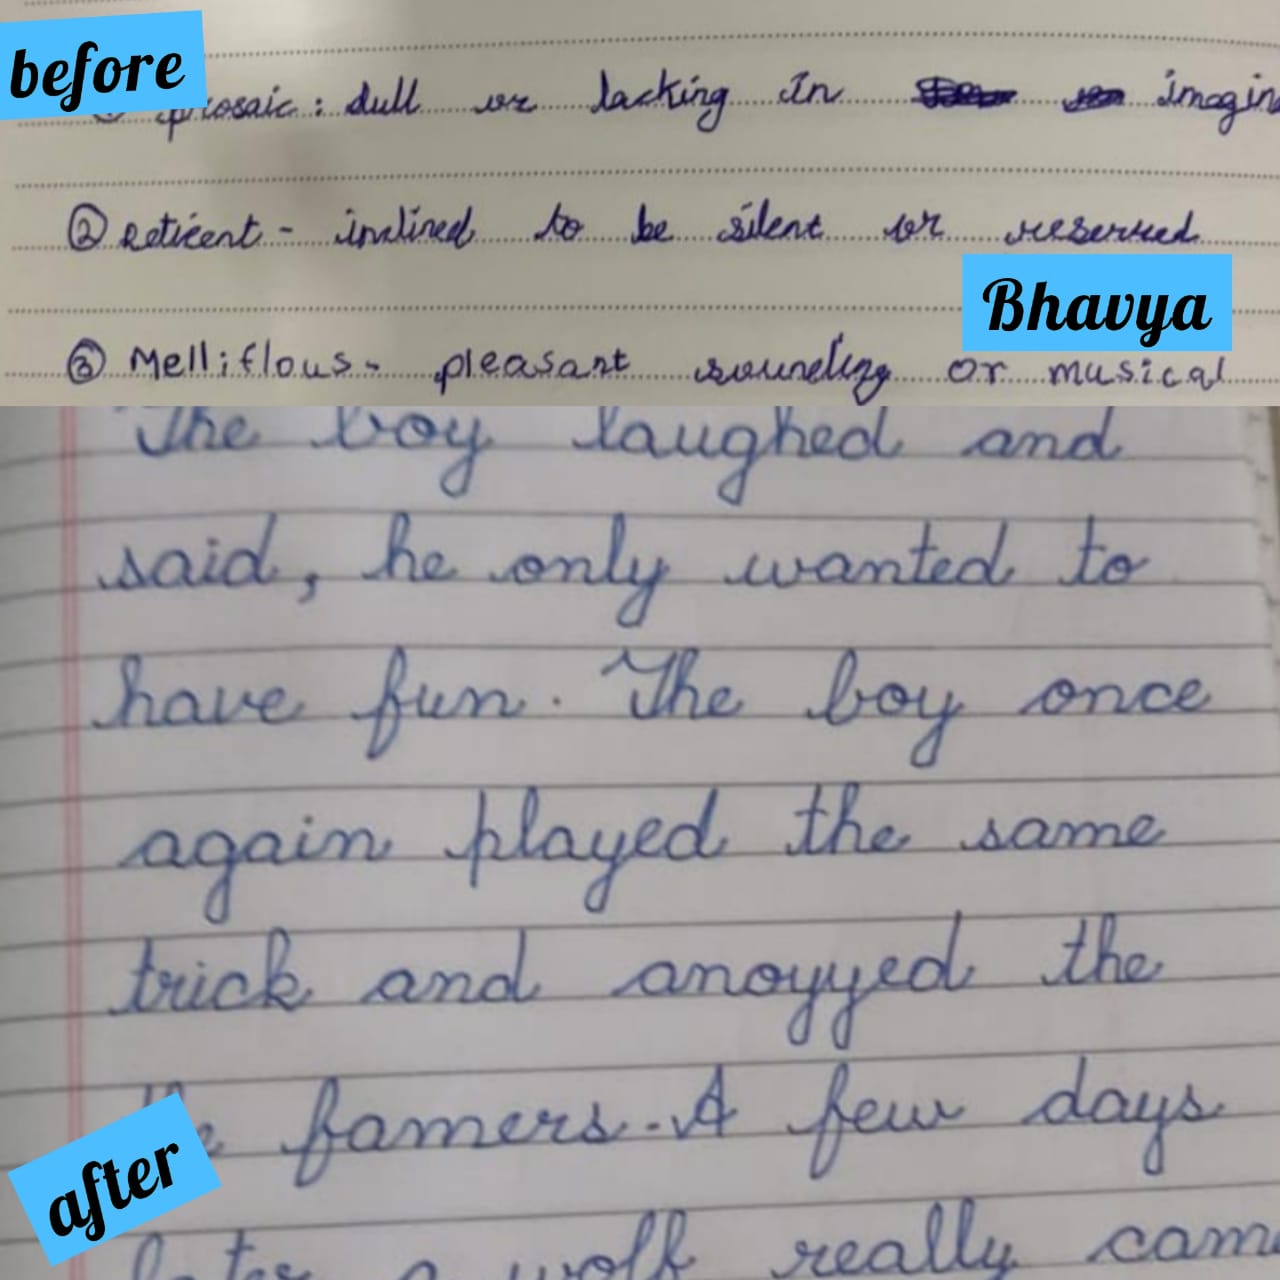 before
prosaic: dull or lacking in imagin
② reticent - inclined to be silent or reserved
Bhavya
③ Melliflous - pleasant sounding or musical
The boy laughed and
said, he only wanted to
have fun. The boy once
again played the same
trick and anoyyed the
famers. A few days
after
later a wolf really cam